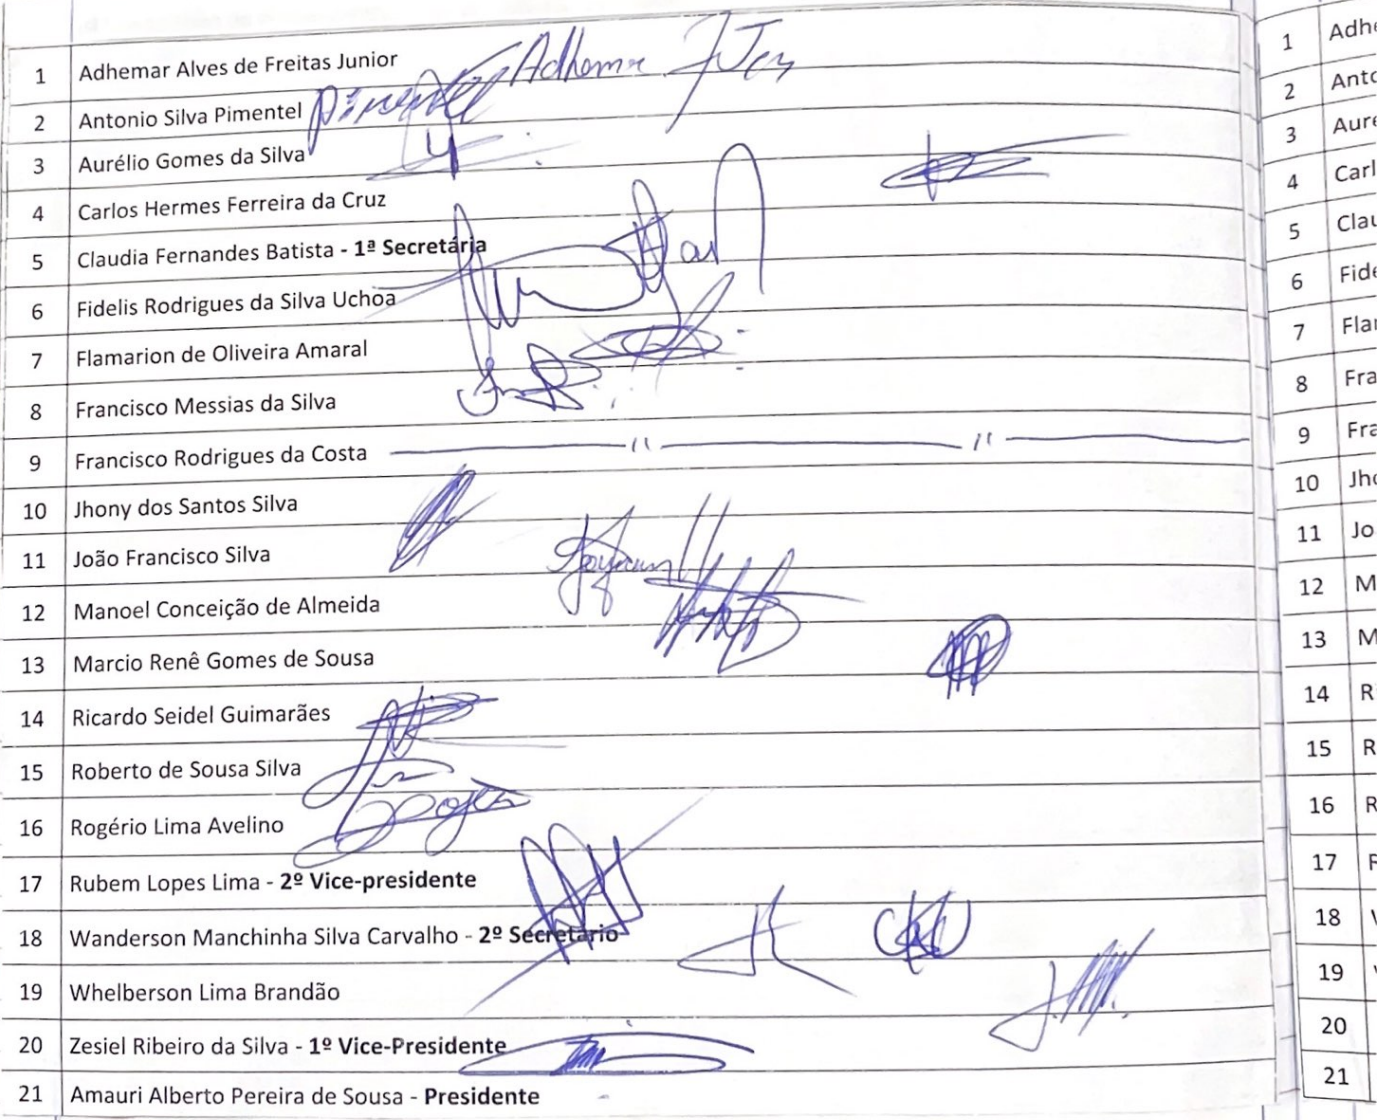 1 Adhemar Alves de Freitas Junior Adhemar
2 Antonio Silva Pimentel Pimentel
3 Aurélio Gomes da Silva
4 Carlos Hermes Ferreira da Cruz
5 Claudia Fernandes Batista - 1ª Secretária
6 Fidelis Rodrigues da Silva Uchoa
7 Flamarion de Oliveira Amaral
8 Francisco Messias da Silva
9 Francisco Rodrigues da Costa
10 Jhony dos Santos Silva
11 João Francisco Silva
12 Manoel Conceição de Almeida
13 Marcio Renê Gomes de Sousa
14 Ricardo Seidel Guimarães
15 Roberto de Sousa Silva
16 Rogério Lima Avelino
17 Rubem Lopes Lima - 2º Vice-presidente
18 Wanderson Manchinha Silva Carvalho - 2º Secretário
19 Whelberson Lima Brandão
20 Zesiel Ribeiro da Silva - 1º Vice-Presidente
21 Amauri Alberto Pereira de Sousa - Presidente
1 Adhe
2 Anto
3 Auré
4 Carl
5 Clau
6 Fide
7 Flar
8 Fra
9 Fra
10 Jho
11 Jo
12 M
13 M
14 R
15 R
16 R
17 R
18
19
20
21